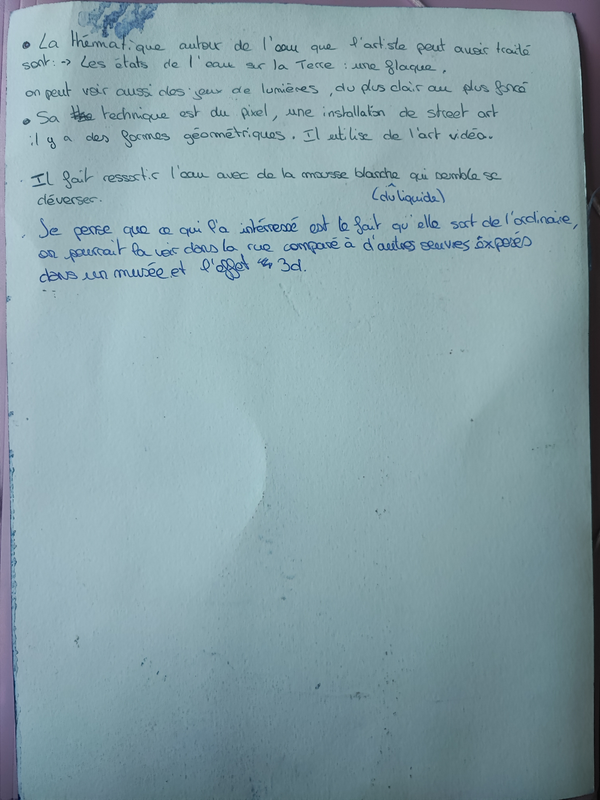 • La thématique autour de l'eau que l'artiste peut avoir traité
sont : → Les états de l'eau sur la Terre : une flaque,
on peut voir aussi des jeux de lumières, du plus clair au plus foncé
• Sa technique est du pixel, une installation de street art
il y a des formes géométriques. Il utilise de l'art vidéo.
. Il fait ressortir l'eau avec de la mousse blanche qui semble se
déverser. (du liquide)
. Je pense que ce qui l'a intérressé est le fait qu'elle sort de l'ordinaire,
on pourrait la voir dans la rue comparé à d'autres oeuvres exposés
dans un musée et l'effet 3d.